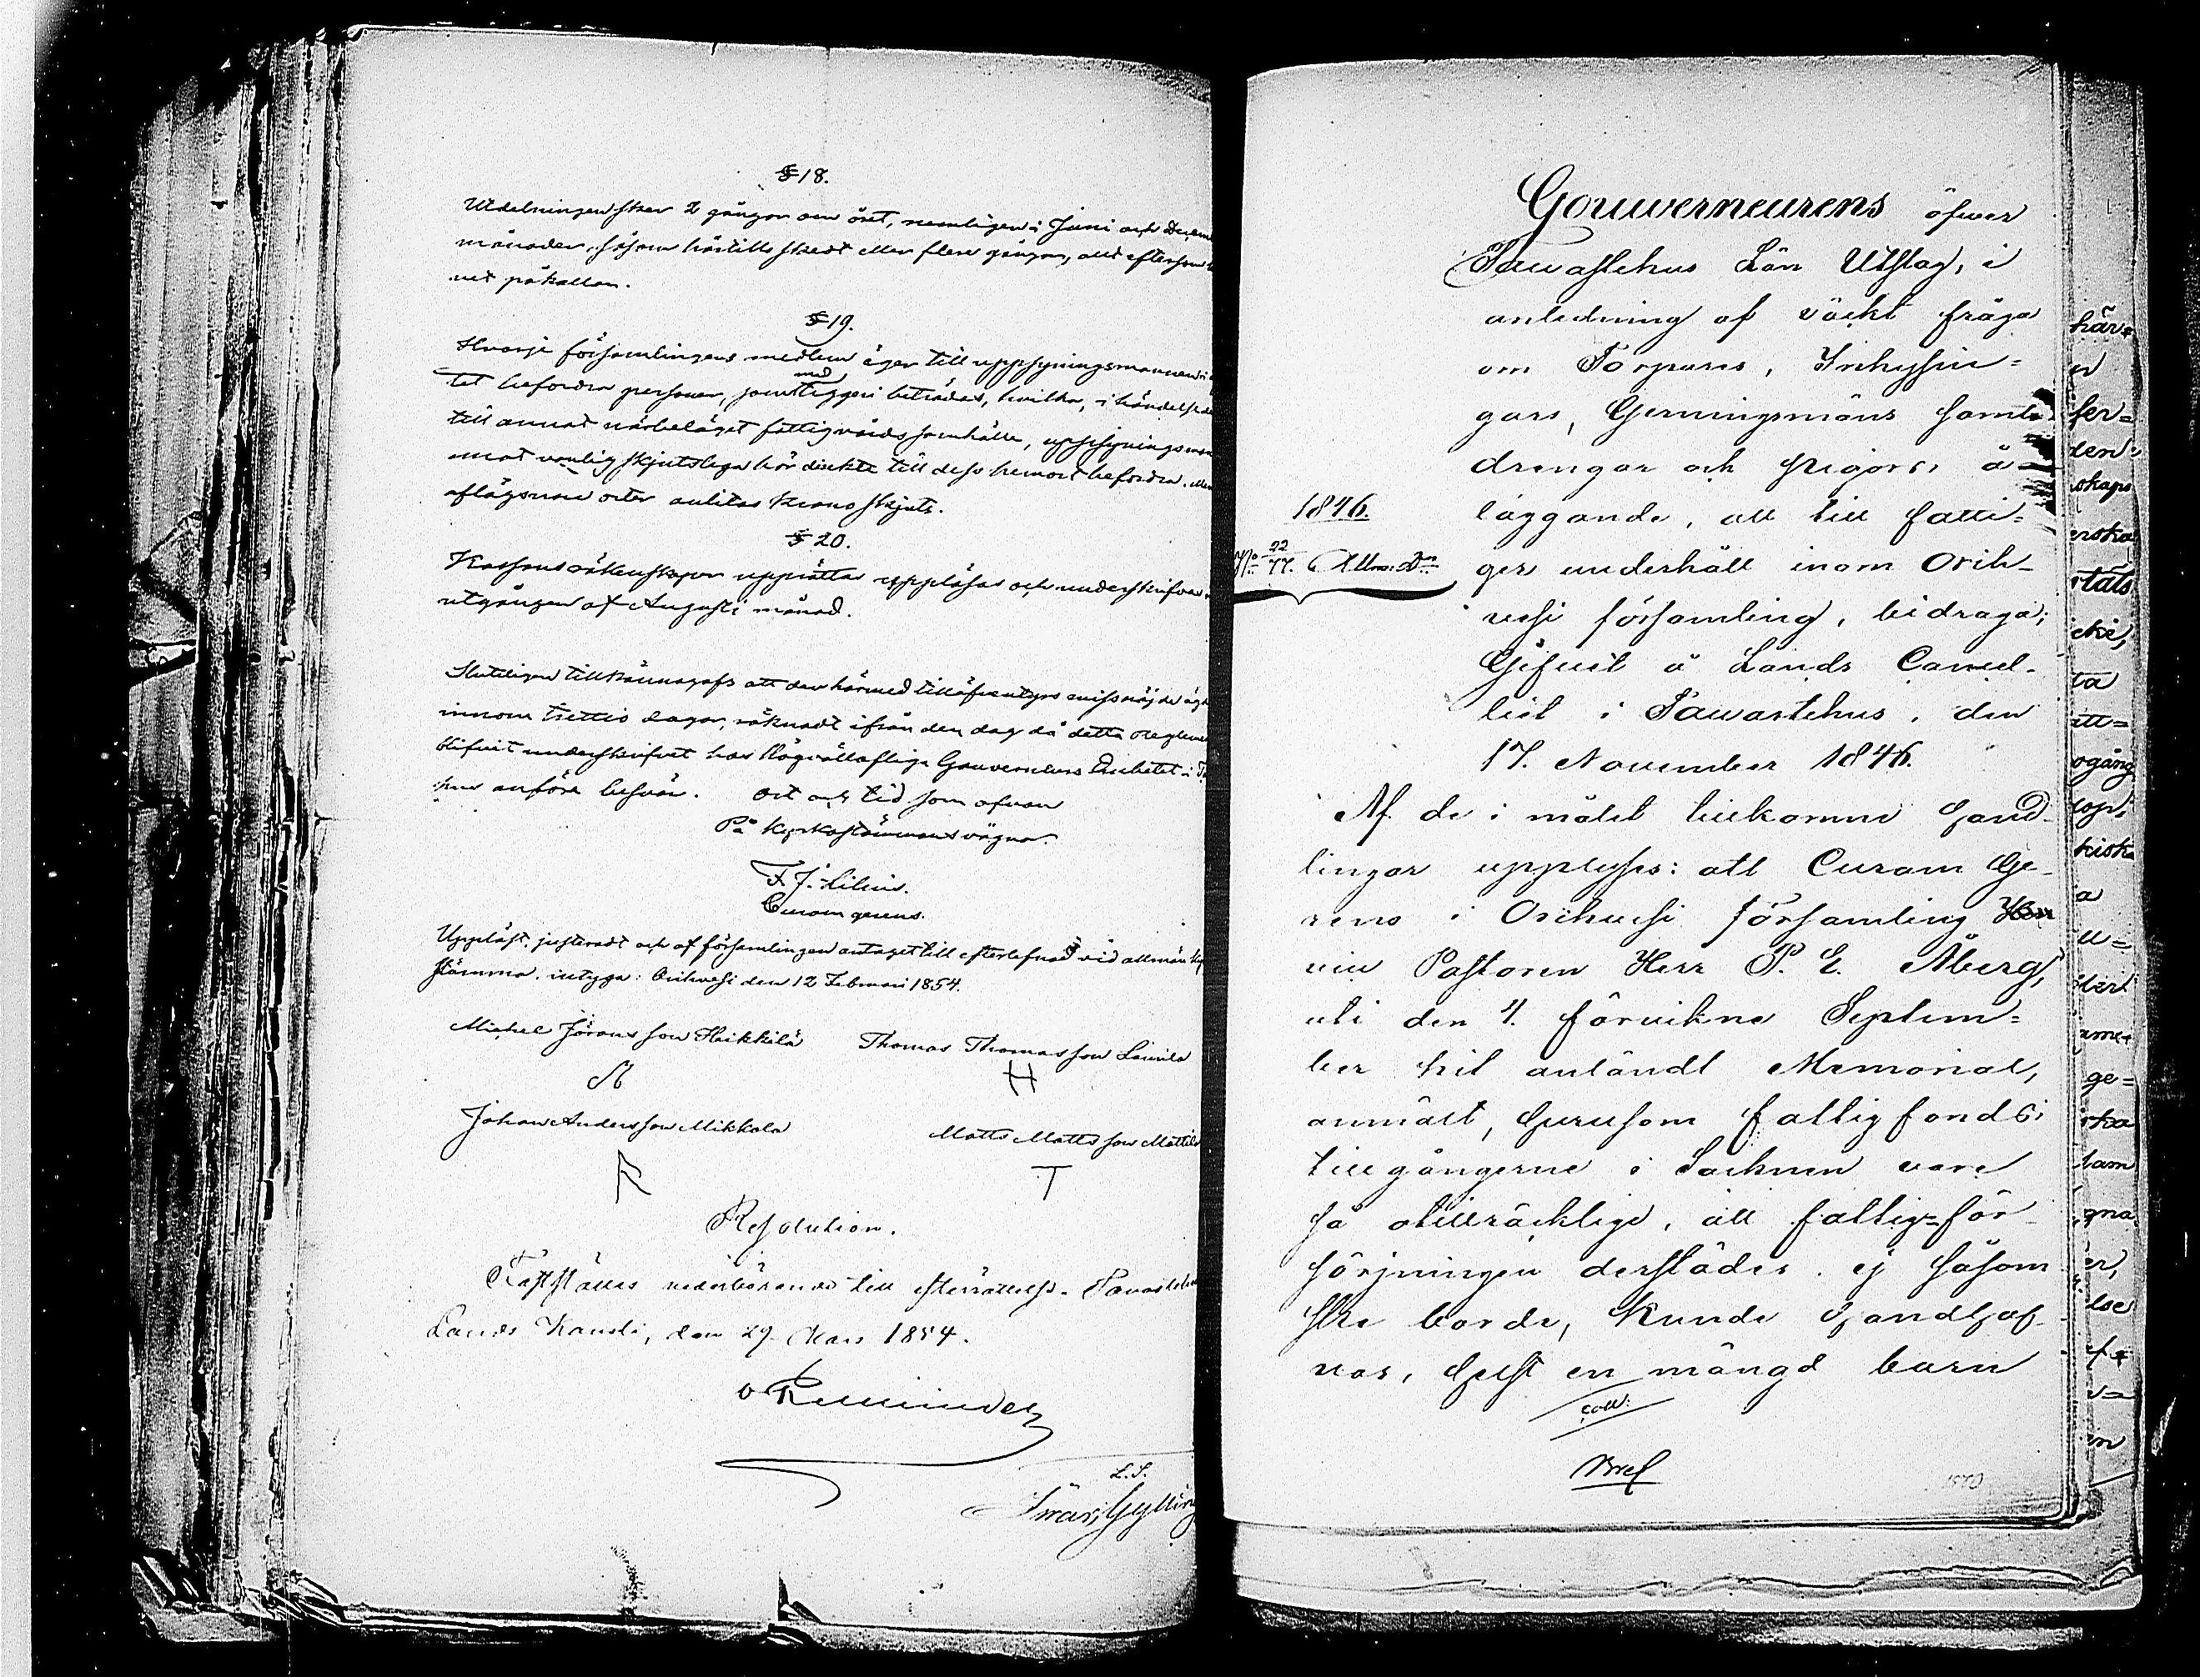 § 18.
Utdelningen sker 2 gånger om året, nemligen i Juni och Decem
månader, såsom härtills skedt eller flere gånger, allt eftersom
det påkallar.
§ 19.
Hvarje församlingens medlem äger till uppsyningsmannen i
tet befordra personer, som med tiggeri beträdas, hvilka, i händelse
till annat närbeläget fattigvårds samhälle, uppsyningsman
mot vanlig skjutslega bör direkte till dess hemort befordra. Men
aflägsnare orter anlitas Kronoskjuts.
§ 20.
Kassans räkenskaper upprättas uppläsas och underskrifvas
utgången af Augusti månad.
Slutligen tillkännagafs att den härmed tilläfventyrs missnöjde äge
innom trettio dagar, räknadt ifrån den dag då detta reglemen
blifvit underskrifvet hos Högvällofliga Gouverneurs Embetet i Ta
hus anföra besvär. Ort och tid som ofvan
På Kyrkostämmans vägnar.
F. J. Lilius.
Curam gerens.
Uppläst, justeradt och af församlingen antaget till efterlefnad vid allmän Ky
stämma, intyga: Orihvesi den 12 Februari 1854.
Michel Jöransson Heikkilä Thomas Thomasson Linnila
H
Johan Andersson Mikkola Matts Mattsson Mattila
T
Resolution.
Fastställes vederbörande till efterrättelse. Tavastehus
Lands Kansli, den 29 Mars 1854.
L.S.
Ivar Gylling
Gouverneurens öfver
Tawastehus Län Utslag, i
anledning af väckt fråga
om Torpares, Inhysin=
gars, Gerningsmäns samt
drengar och pigors, å=
läggande, att till fatti=
1846.
gas underhåll inom Orih-
No 22/77. Allm: Dn
vesi församling, bidraga;
Gifvit å Lands Cancel-
liet i Tawastehus, den
17. November 1846.
Af de i målet inkomne Hand-
lingar upplyses: att Curam Ge-
rens i Orihvesi församling
vice Pastoren Herr P. E. Åberg,
uti den 4. förvikne Septem=
ber hit anländt Memorial,
anmält, hurusom fattigfonds
tillgångerne i Socknen vore
så otillräcklige, att fattig=för-
sörjningen derstädes, ej såsom
ske borde, kunde handhaf-
vas, helst en mängd barn
coll:
här=
n
fer=
den=
skaps
erska
täls
cke,
ta
ett=
ogång
sogn,
kiska
a
u=
stert
ame=
ge=
ska
sam
gna
er,
lse
v=
en